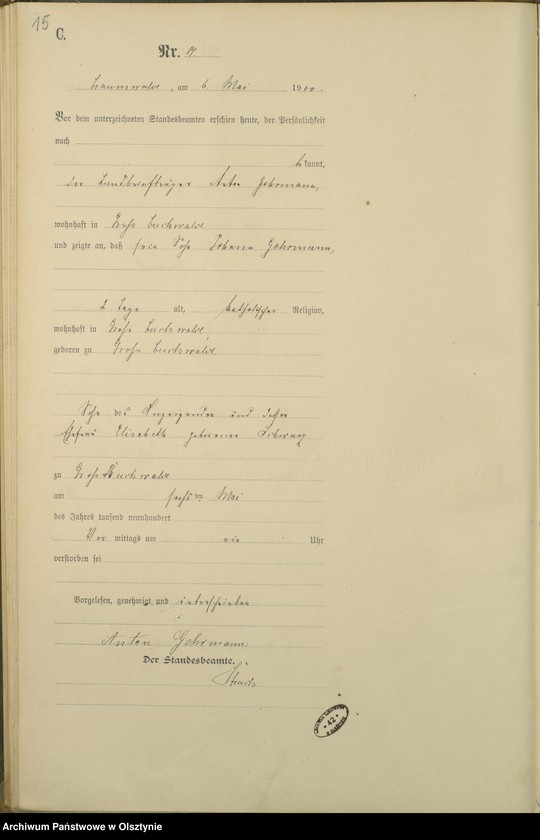 15
C.
Nr. 14
Braunswalde, am 6. Mai 1900.
Vor dem unterzeichneten Standesbeamten erschien heute, der Persönlichkeit
nach
bekannt,
der Landbriefträger Anton Gehrmann,
wohnhaft in Groß Buchwalde
und zeigte an, daß sein Sohn Johann Gehrmann,
2 Tage alt, katholischer Religion,
wohnhaft in Groß Buchwalde
geboren zu Groß Buchwalde
Sohn des Anzeigenden und dessen
Ehefrau Elisabeth geborenen Schwarz
zu Groß Buchwalde
am sechsten Mai
des Jahres tausend neunhundert
Vor mittags um Uhr
verstorben sei
Vorgelesen, genehmigt und unterschrieben
Anton Gehrmann
Der Standesbeamte.
42
Archiwum Państwowe w Olsztynie